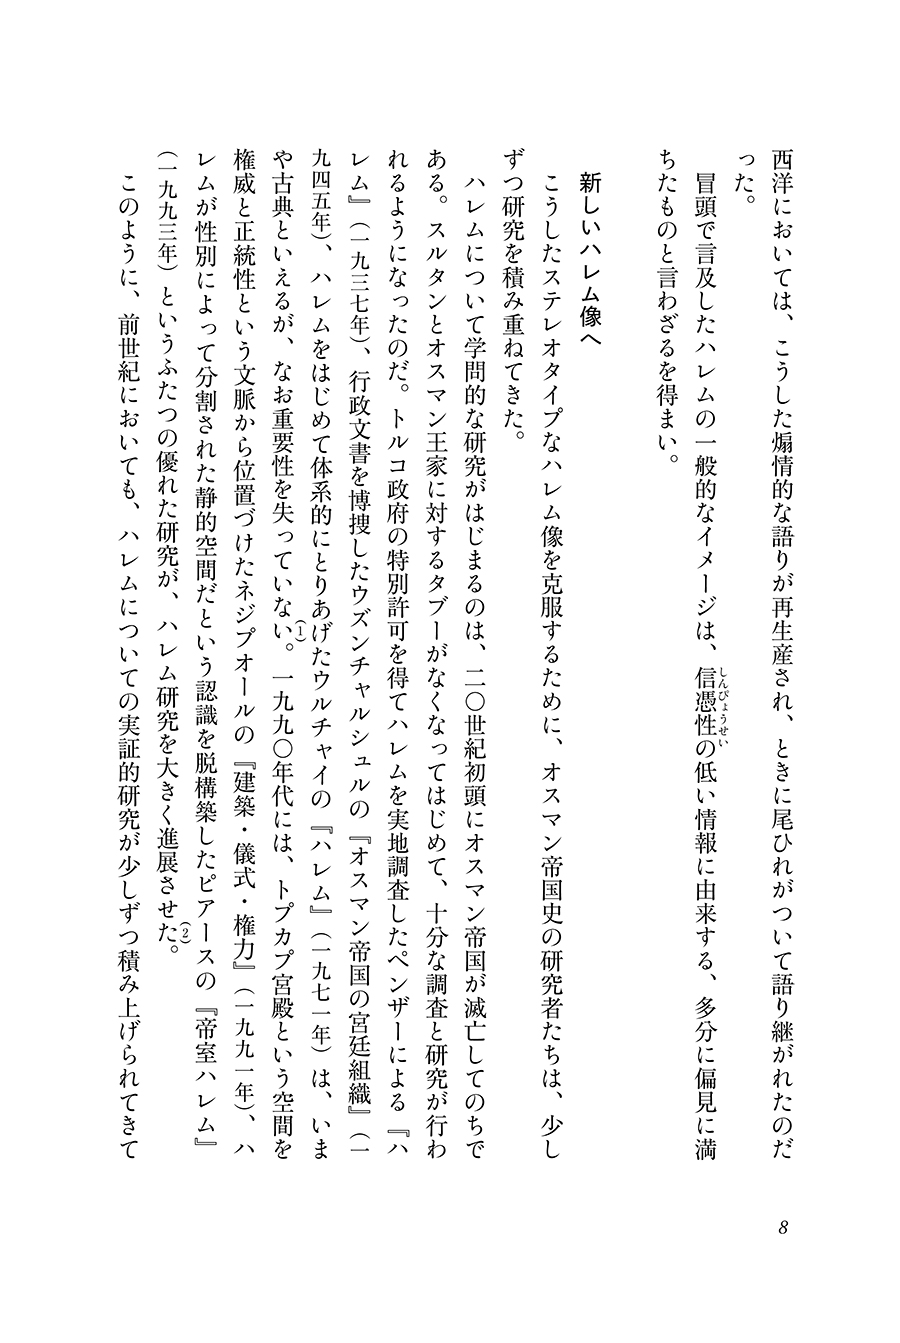 西洋においては、こうした煽情的な語りが再生産され、ときに尾ひれがついて語り継がれたのだ
った。
冒頭で言及したハレムの一般的なイメージは、信憑性の低い情報に由来する、多分に偏見に満
しんぴょうせい
ちたものと言わざるを得まい。
新しいハレム像へ
こうしたステレオタイプなハレム像を克服するために、オスマン帝国史の研究者たちは、少し
ずつ研究を積み重ねてきた。
ハレムについて学問的な研究がはじまるのは、二〇世紀初頭にオスマン帝国が滅亡してのちで
ある。スルタンとオスマン王家に対するタブーがなくなってはじめて、十分な調査と研究が行わ
れるようになったのだ。トルコ政府の特別許可を得てハレムを実地調査したペンザーによる『ハ
レム』（一九三七年）、行政文書を博捜したウズンチャルシュルの『オスマン帝国の宮廷組織』（一
九四五年）、ハレムをはじめて体系的にとりあげたウルチャイの『ハレム』（一九七一年）は、いま
や古典といえるが、なお重要性を失っていない(1)。一九九〇年代には、トプカプ宮殿という空間を
権威と正統性という文脈から位置づけたネジプオールの『建築・儀式・権力』（一九九一年）、ハ
レムが性別によって分割された静的空間だという認識を脱構築したピアースの『帝室ハレム』
（一九九三年）というふたつの優れた研究が、ハレム研究を大きく進展させた(2)。
このように、前世紀においても、ハレムについての実証的研究が少しずつ積み上げられてきて
8